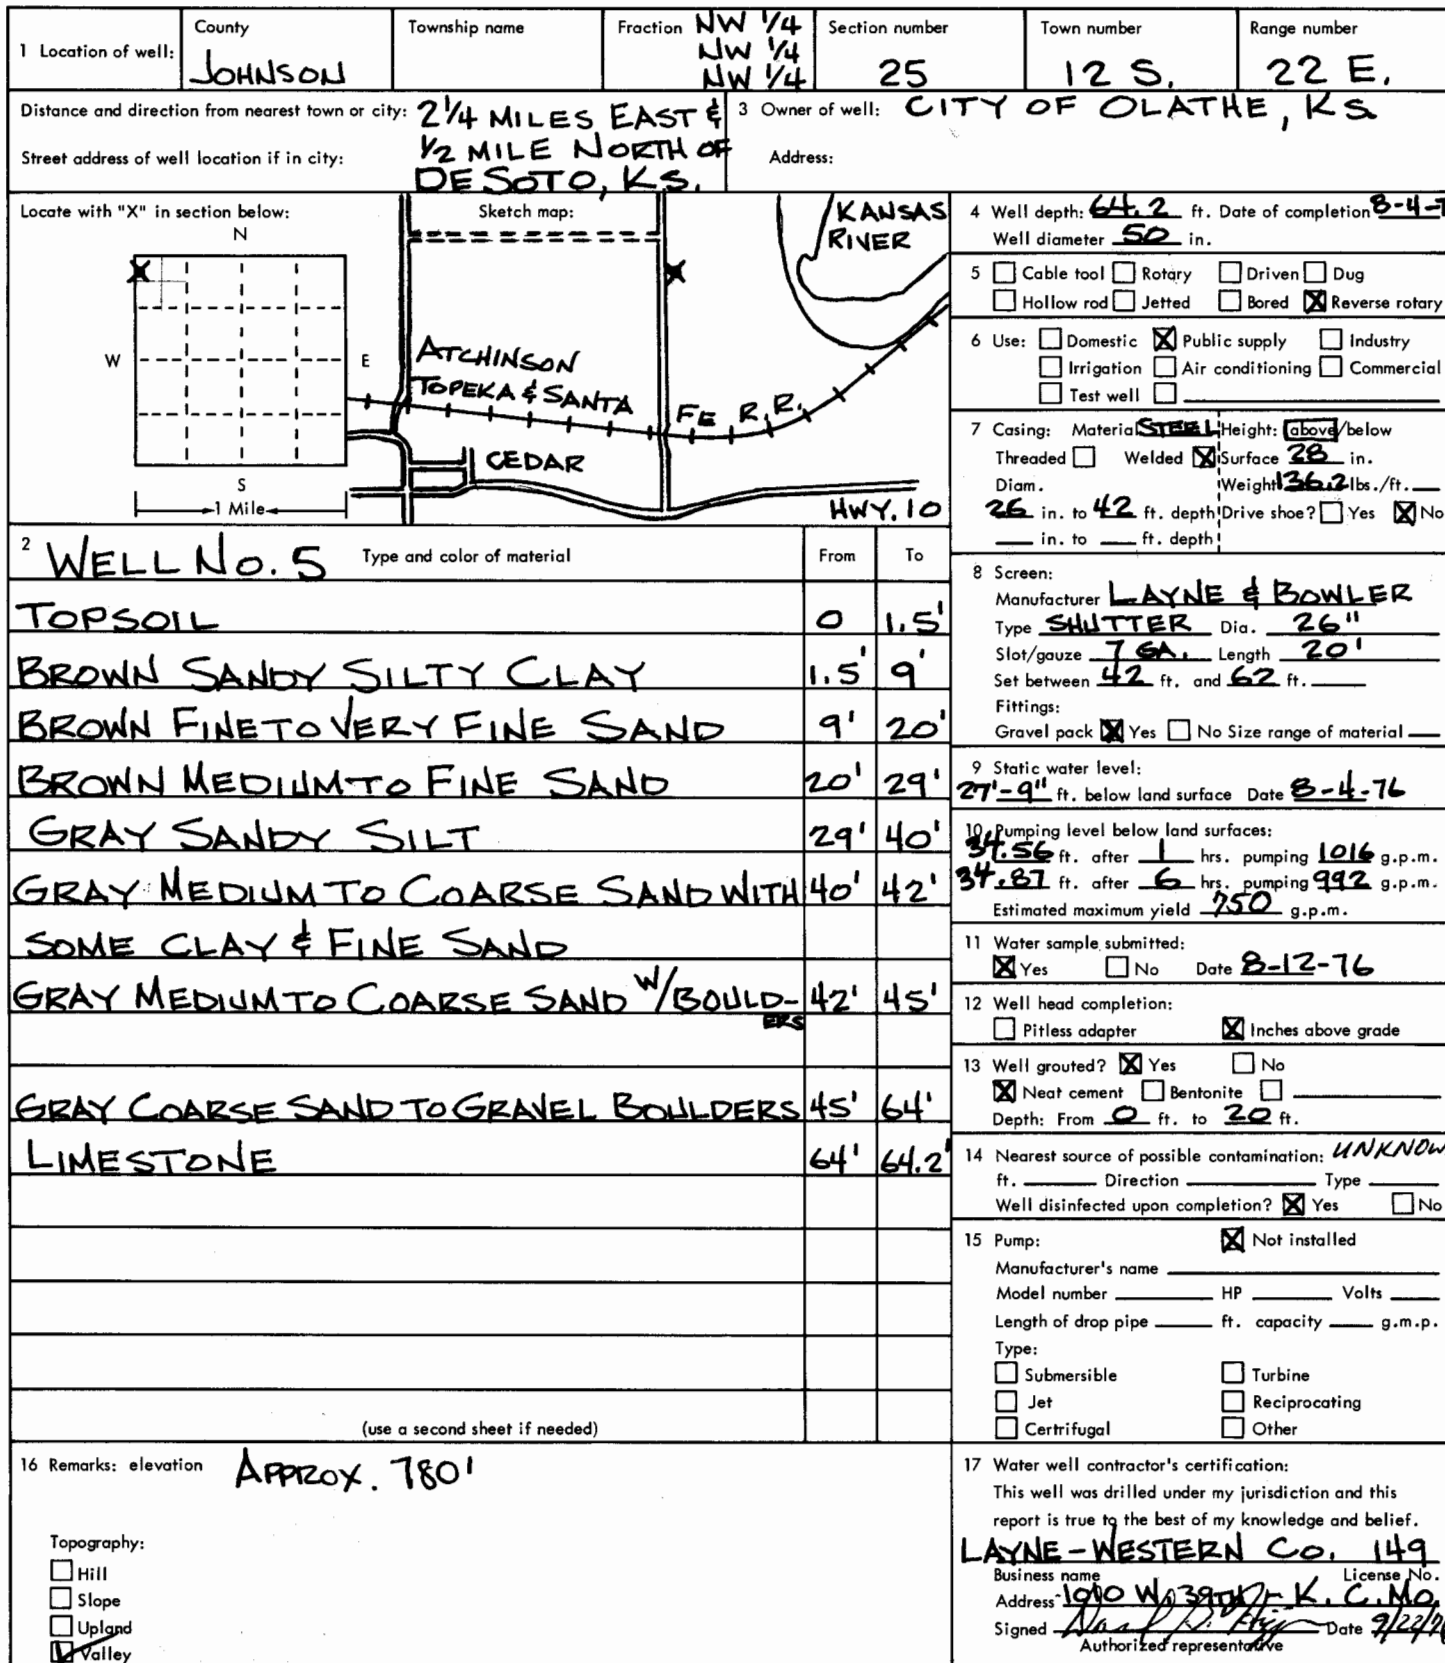 1 Location of well:
County
JOHNSON
Township name
Fraction NW 1/4
NW 1/4
NW 1/4
Section number
25
Town number
12 S.
Range number
22 E.
Distance and direction from nearest town or city: 2 1/4 MILES EAST &
Street address of well location if in city: 1/2 MILE NORTH OF
DE SOTO, KS.
3 Owner of well: CITY OF OLATHE, KS
Address:
Locate with "X" in section below:
N
X
W
E
S
1 Mile
Sketch map:
KANSAS
RIVER
X
ATCHINSON
TOPEKA & SANTA FE R.R.
CEDAR
HWY. 10
2 WELL NO. 5 Type and color of material From To
TOPSOIL 0 1.5'
BROWN SANDY SILTY CLAY 1.5' 9'
BROWN FINE TO VERY FINE SAND 9' 20'
BROWN MEDIUM TO FINE SAND 20' 29'
GRAY SANDY SILT 29' 40'
GRAY MEDIUM TO COARSE SAND WITH 40' 42'
SOME CLAY & FINE SAND
GRAY MEDIUM TO COARSE SAND W/BOULD- 42' 45'
ERS
GRAY COARSE SAND TO GRAVEL BOULDERS 45' 64'
LIMESTONE 64' 64.2'
(use a second sheet if needed)
4 Well depth: 64.2 ft. Date of completion 8-4-7
Well diameter 50 in.
5 Cable tool Rotary Driven Dug
Hollow rod Jetted Bored X Reverse rotary
6 Use: Domestic X Public supply Industry
Irrigation Air conditioning Commercial
Test well
7 Casing: Material STEEL Height: above/below
Threaded Welded X Surface 28 in.
Diam. Weight 136.2 lbs./ft.
26 in. to 42 ft. depth Drive shoe? Yes X No
in. to ft. depth
8 Screen:
Manufacturer LAYNE & BOWLER
Type SHUTTER Dia. 26"
Slot/gauze 7 GA. Length 20'
Set between 42 ft. and 62 ft.
Fittings:
Gravel pack X Yes No Size range of material
9 Static water level:
27'-9" ft. below land surface Date 8-4-76
10 Pumping level below land surfaces:
34.56 ft. after 1 hrs. pumping 1016 g.p.m.
34.87 ft. after 6 hrs. pumping 992 g.p.m.
Estimated maximum yield 750 g.p.m.
11 Water sample submitted:
X Yes No Date 8-12-76
12 Well head completion:
Pitless adapter X Inches above grade
13 Well grouted? X Yes No
X Neat cement Bentonite
Depth: From 0 ft. to 20 ft.
14 Nearest source of possible contamination: UNKNOW
ft. Direction Type
Well disinfected upon completion? X Yes No
15 Pump: X Not installed
Manufacturer's name
Model number HP Volts
Length of drop pipe ft. capacity g.m.p.
Type:
Submersible Turbine
Jet Reciprocating
Certrifugal Other
16 Remarks: elevation APPROX. 780'
Topography:
Hill
Slope
Upland
Valley
17 Water well contractor's certification:
This well was drilled under my jurisdiction and this
report is true to the best of my knowledge and belief.
LAYNE-WESTERN CO. 149
Business name License No.
Address 1010 W. 39TH - K. C. MO.
Signed Date 9/22/7
Authorized representative